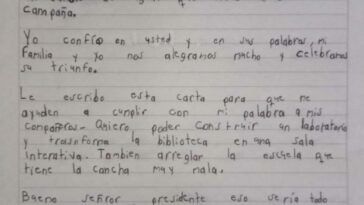 campaña.
Yo confío en usted y en sus palabras, mi
Familia y yo nos alegramos mucho y celebramos
su triunfo.
Le escribo esta carta para que me
ayuden a cumplir con mi palabra a mis
compañeros. Quiero poder construir un laboratorio
y transformar la biblioteca en una sala
interativa. Tambien arreglar la escuela que
tiene la cancha muy mala.
Bueno señor presidente eso sería todo